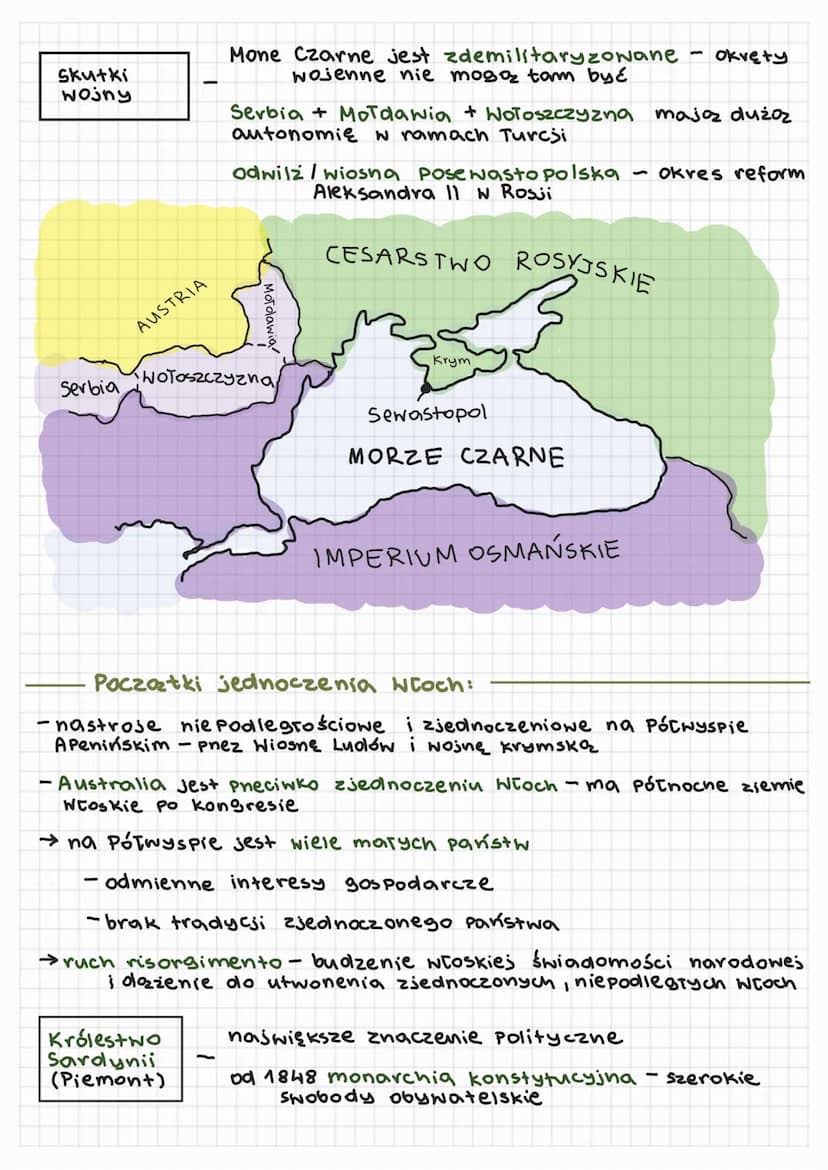 Skutki
wojny
–
Mone Czarne jest zdemilitaryzowane – okręty
wojenne nie mogą tam być
Serbia + Mołdawia + Wołoszczyzna mają dużą
autonomię w ramach Turcji
odwilż / wiosna posewastopolska – okres reform
Aleksandra II w Rosji
CESARSTWO ROSYJSKIE
AUSTRIA
Mołdawia
Krym
Serbia
Wołoszczyzna
Sewastopol
MORZE CZARNE
IMPERIUM OSMAŃSKIE
Początki jednoczenia Włoch:
– nastroje niepodległościowe i zjednoczeniowe na Półwyspie
Apenińskim – pnez Wiosnę Ludów i wojnę krymską
– Australia jest pneciwko zjednoczeniu Włoch – ma północne ziemie
włoskie po kongresie
→ na Półwyspie jest wiele małych państw
– odmienne interesy gospodarcze
– brak tradycji zjednoczonego państwa
→ ruch risorgimento – budzenie włoskiej świadomości narodowej
i dążenie do utwonenia zjednoczonych, niepodległych Włoch
Królestwo
Sardynii
(Piemont)
–
największe znaczenie polityczne
od 1848 monarchia konstytucyjna – szerokie
swobody obywatelskie